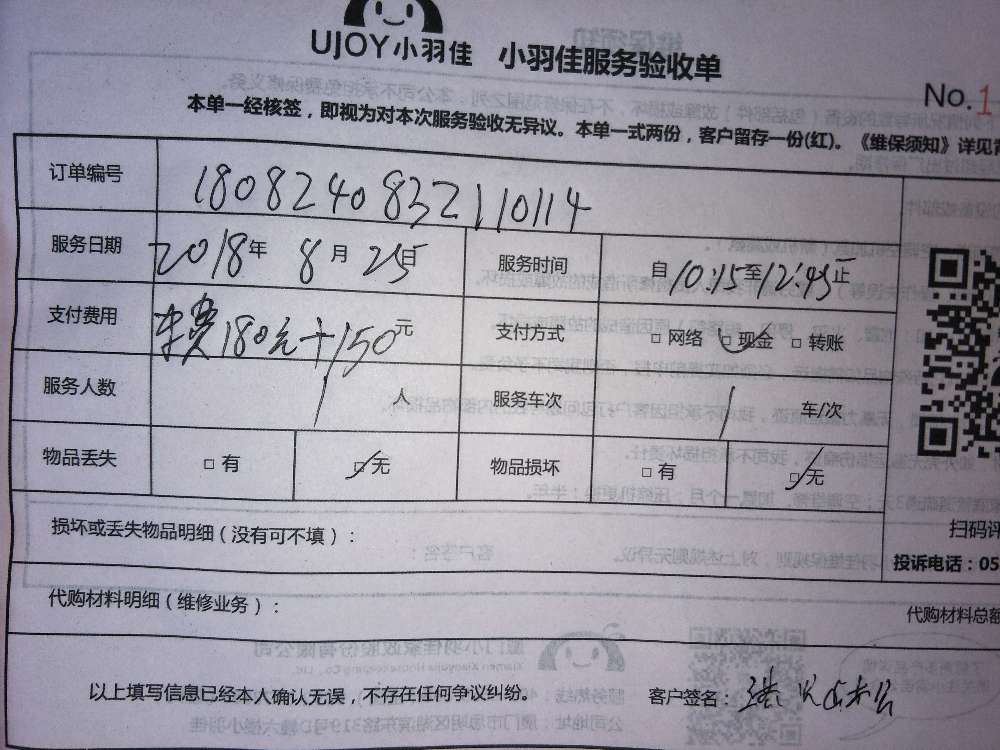 UJOY小羽佳 小羽佳服务验收单
No.1
本单一经核签，即视为对本次服务验收无异议。本单一式两份，客户留存一份(红)。《维保须知》详见
订单编号 1808240832110114
服务日期 2018年 8月 25日 服务时间 自10:15至12:45止
支付费用 车费180元+150元 支付方式 □ 网络 □ 现金 □ 转账
服务人数 1 人 服务车次 1 车/次
物品丢失 □ 有 □ 无 物品损坏 □ 有 □ 无
损坏或丢失物品明细（没有可不填）：
扫码评
投诉电话：05
代购材料明细（维修业务）：
代购材料总额
以上填写信息已经本人确认无误，不存在任何争议纠纷。 客户签名：